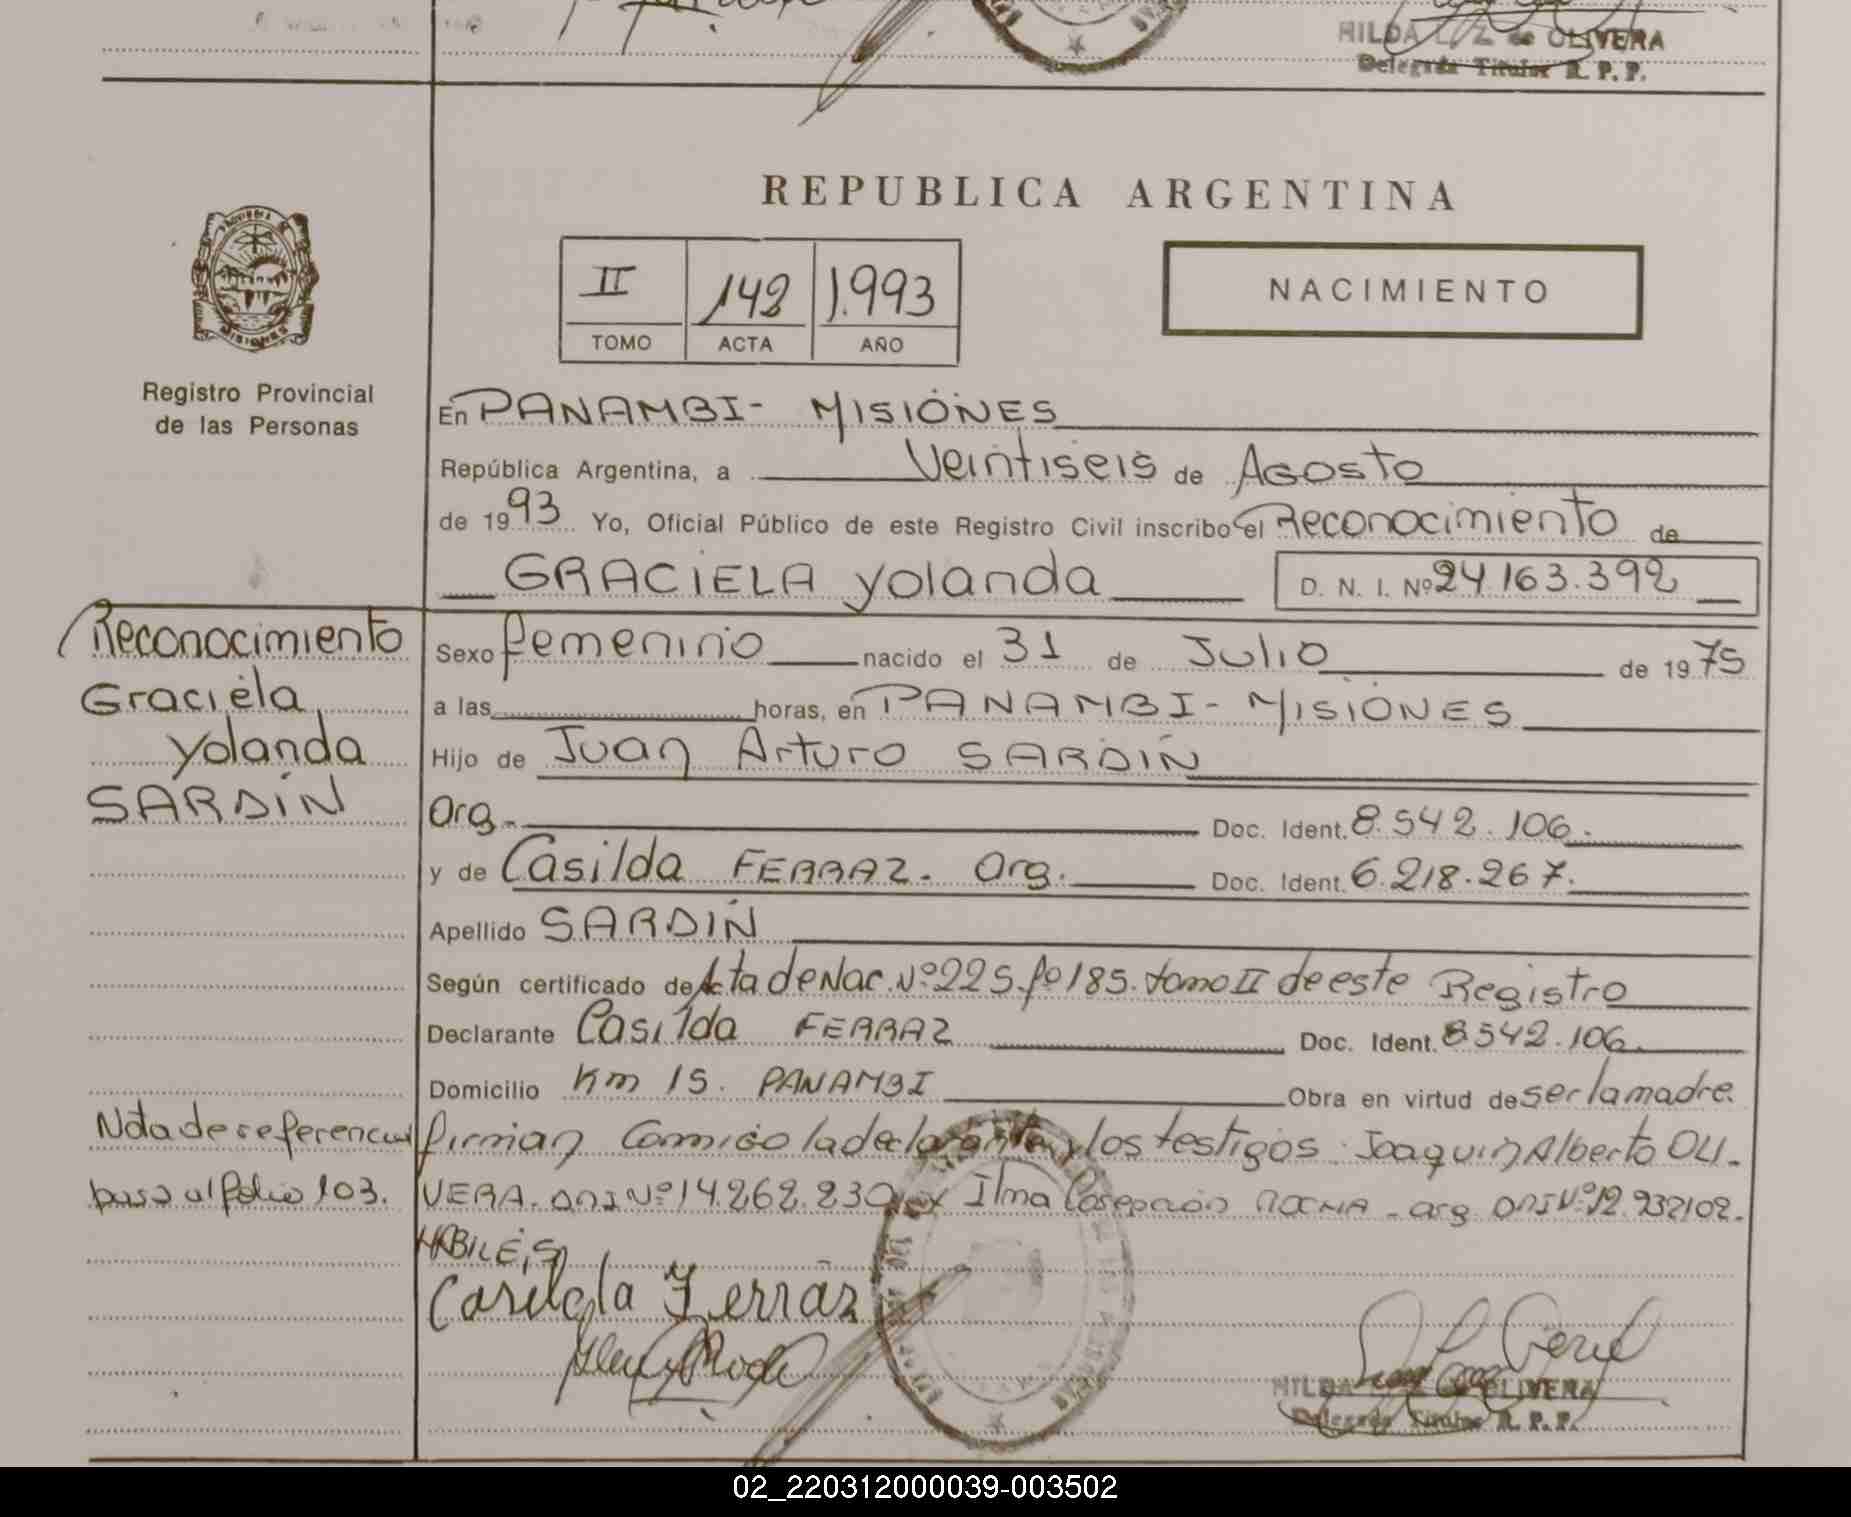 HILDA L. Z. de OLIVERA
Delegada Titular R. P. P.
REPUBLICA ARGENTINA
II 148 1.993
TOMO ACTA AÑO
NACIMIENTO
Registro Provincial
de las Personas
En PANAMBI- MISIONES
República Argentina, a Veintiseis de Agosto
de 1993 Yo, Oficial Público de este Registro Civil inscribo el Reconocimiento de
GRACIELA yolanda D. N. I. Nº 24.163.392
Reconocimiento
Graciela
yolanda
SARDIN
Sexo femenino nacido el 31 de Julio de 1975
a las horas, en PANAMBI- MISIONES
Hijo de Juan Arturo SARDIN
Arg. Doc. Ident. 8.542.106.
y de Casilda FERRAZ. Arg. Doc. Ident. 6.218.267.
Apellido SARDIN
Según certificado de Acta de Nac. Nº 225. fº 185. tomo II de este Registro
Declarante Casilda FERRAZ Doc. Ident. 8.542.106.
Domicilio Km 15. PANAMBI Obra en virtud de ser la madre.
Nota de referencia
pasa al folio 103.
firman Conmigo la declarante y los testigos: Joaquin Alberto OLI-
VERA. DNI Nº 14.262.230 Ilma Concepción ROCHA - arg DNI Nº 12.932102.
HABILES
Casilda Ferraz
HILDA L. Z. de OLIVERA
Delegada Titular R. P. P.
02_220312000039-003502